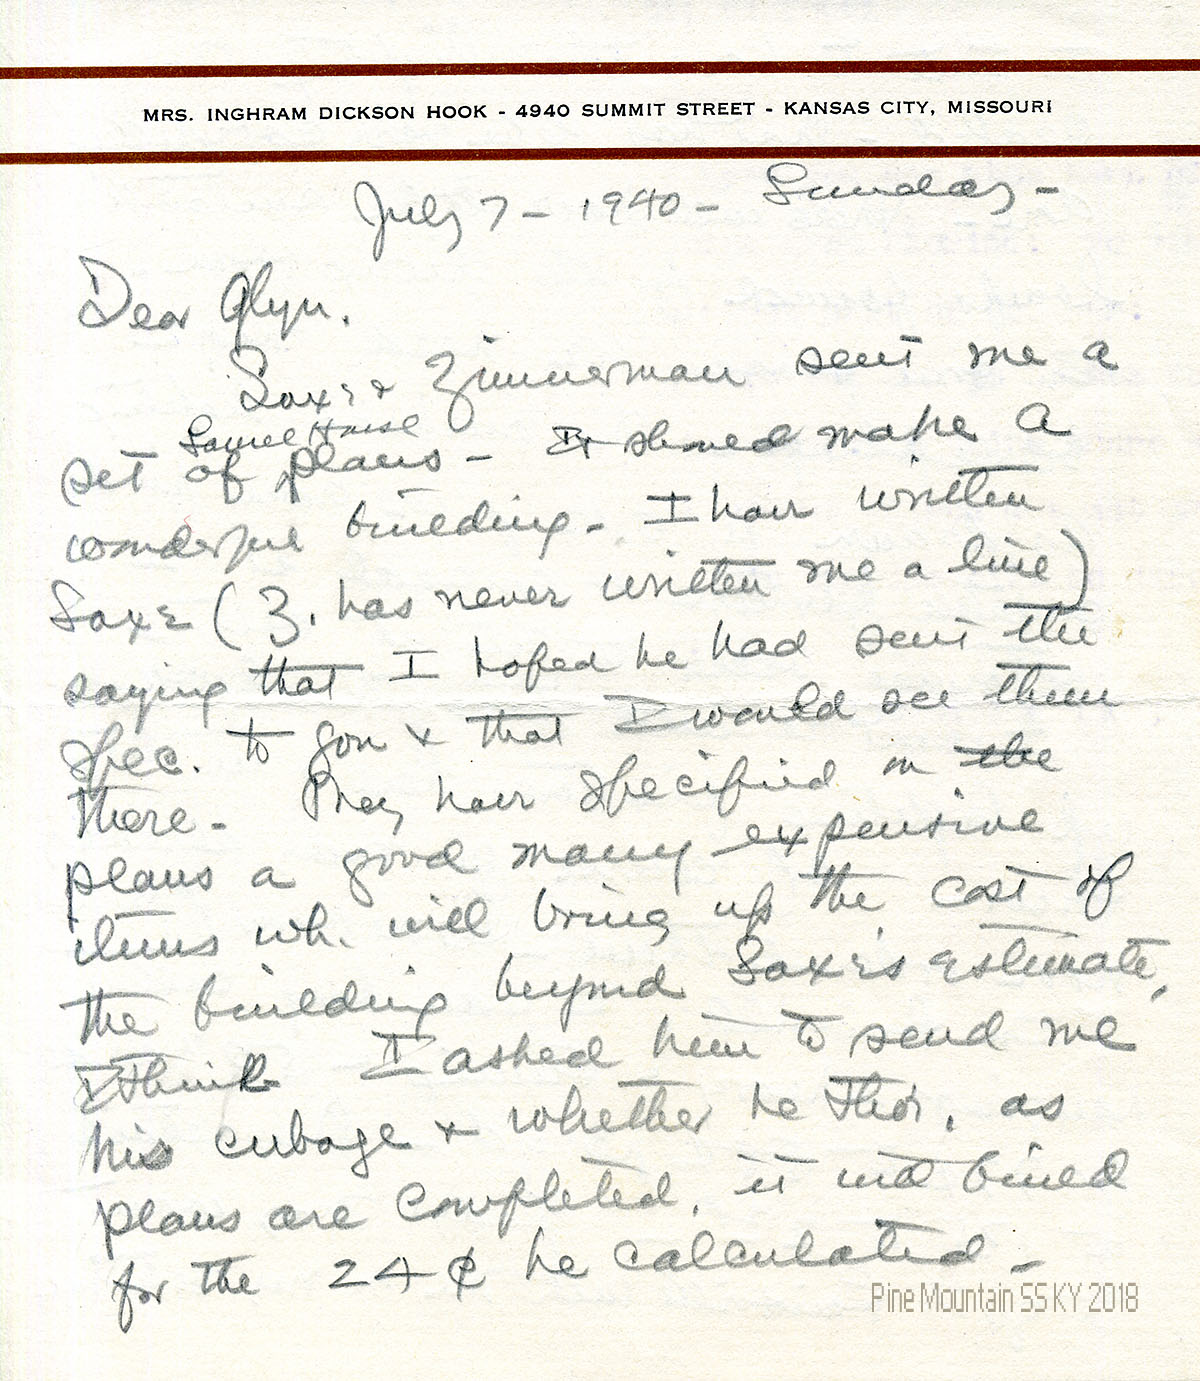 MRS. INGHRAM DICKSON HOOK - 4940 SUMMIT STREET - KANSAS CITY, MISSOURI
July 7 - 1940 - Sunday -
Dear Glyn.
Saxe & Zimmerman sent me a
Laurel House
set of plans - It should make a
wonderful building - I have written
Saxe (Z. has never written me a line)
saying that I hoped he had sent the
spec. to you & that I would see them
there - They have specified in the
plans a good many expensive
items wh. will bring up the cost of
the building beyond Saxe's estimate,
I think I asked him to send me
his cubage & whether he tho't, as
plans are completed, it wd build
for the 24 ¢ he calculated -
Pine Mountain SS KY 2018